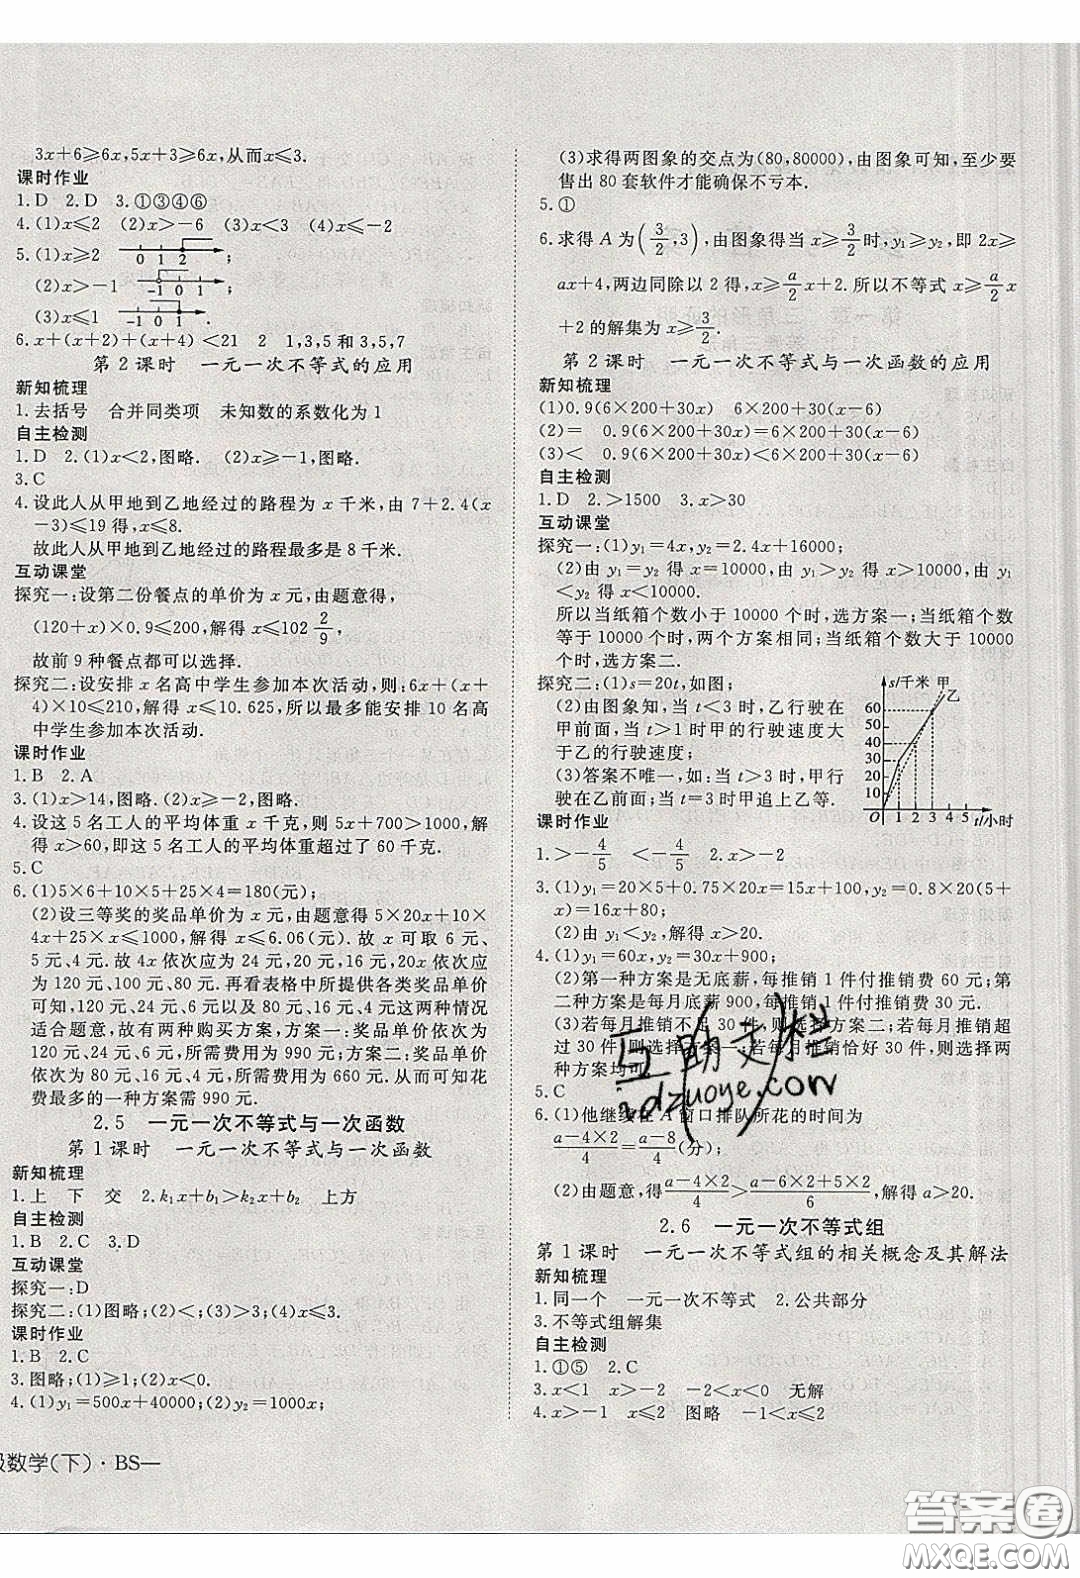 3x+6⩾6x,5x+3⩾6x,从而x⩽3.
课时作业
1.D 2.D 3.①③④⑥
4.(1)x⩽2 (2)x>-6 (3)x<3 (4)x⩽-2
5.(1)x⩾2 0 1 2 ;
(2)x>-1 -1 0 1 ;
(3)x⩽1 -1 0 1 .
6.x+(x+2)+(x+4) <21 2 1,3,5和3,5,7
第2课时 一元一次不等式的应用
新知梳理
1.去括号 合并同类项 未知数的系数化为1
自主检测
1.D 2.(1)x<2,图略. (2)x>-6,图略.
3.C
4.设此人从甲地到乙地经过的路程为x千米,由7+2.4(x
-3)⩽19得,x⩽8.
故此人从甲地到乙地经过的路程最多是8千米.
互动课堂
探究一:设第二份餐点的单价为x元,由题意得,
(120+x)×0.9⩽200,解得x⩽102 2/9,
故前9种餐点都可以选择.
探究二:设安排x名高中学生参加本次活动,则:6x+(x+
4)×10⩽210,解得x⩽10.625,所以最多能安排10名高
中学生参加本次活动.
课时作业
1.B 2.A
3.(1)x>14,图略.(2)x⩾-2,图略.
4.设这5名工人的平均体重x千克,则5x+700>1000,解
得x>60,即这5名工人的平均体重超过了60千克.
5.C
6.(1)5×6+10×5+25×4=180(元);
(2)设三等奖的奖品单价为x元,由题意得5×20x+10×
4x+25x⩽1000,解得x⩽6.06(元).故x可取6元、
5元、4元.故4x依次应为24元、20元、16元,20x依次应
为120元、100元、80元.再看表格中所提供各类奖品单价
120元、24元、6元以及80元、16元、4元这两种情况
适合题意,故有两种购买方案,方案一:奖品单价依次为
120元、24元、6元,所需费用为990元;方案二:奖品单
价依次为80元、16元、4元,所需费用为660元.从而可知花
费最多的一种方案需990元.
2.5 一元一次不等式与一次函数
第1课时 一元一次不等式与一次函数
新知梳理
1.上 下 交 2.k₁x+b₁>k₂x+b₂ 上方
自主检测
1.B 2.C 3.D
互动课堂
探究一:D
探究二:(1)图略;(2)<;(3)>;(4)x⩽3.
课时作业
1.B 2.C
3.图略;(1)⩾1;(2)<0.
4.(1)y₁=500x+40000;(2)y₂=1000x;
级数学(下)·BS—
(3)求得两图象的交点为(80,80000),由图象可知,至少要
售出80套软件才能确保不亏本.
5.①
6.求得A为(3/2,3),由图象得当x⩾3/2时,y₁⩾y₂,即2x⩾
ax+4,两边同除以2得,x⩾a/2x+2.所以不等式x⩾a/2x
+2的解集为x⩾3/2.
第2课时 一元一次不等式与一次函数的应用
新知梳理
(1)0.9(6×200+30x) 6×200+30(x-6)
(2)= 0.9(6×200+30x)=6×200+30(x-6)
(3)< 0.9(6×200+30x)<6×200+30(x-6)
自主检测
1.D 2.>1500 3.x>30
互动课堂
探究一:(1)y₁=4x,y₂=2.4x+16000;
(2)由y₁=y₂得x=10000,由y₁>y₂得x>10000,由y₁
<y₂得x<10000.
所以当纸箱个数小于10000个时,选方案一;当纸箱个数
等于10000个时,两个方案相同;当纸箱个数大于10000
个时,选方案二.
探究二:(1)s=20t,如图;
(2)由图象知,当t<3时,乙行驶在
甲前面,当t>1时甲的行驶速度大
于乙的行驶速度;
(3)答案不唯一,如:当t>3时,甲行
驶在乙前面;当t=3时甲追上乙等.
s/千米 甲
乙
60
50
40
30
20
10
O 1 2 3 4 5 t/小时
课时作业
1.>-4/5 <-4/5 2.x>-2
3.(1)y₁=20×5+0.75×20x=15x+100,y₂=0.8×20(5+
x)=16x+80;
(2)由y₁<y₂,解得x>20.
4.(1)y₁=60x,y₂=30x+900;
(2)第一种方案是无底薪,每推销1件付推销费60元,第
二种方案是每月底薪900,每推销1件付推销费30元.
(3)若每月推销不足30件,则选择方案二;若每月推销超
过30件,则选择方案一;若每月推销恰好30件,则选择两种
方案均可.
5.C
6.(1)他继续在A窗口排队所花的时间为
(a-4×2)/4=(a-8)/4(分);
(2)由题意,得(a-4×2)/4>(a-6×2+5×2)/6,解得a>20.
2.6 一元一次不等式组
第1课时 一元一次不等式组的相关概念及其解法
新知梳理
1.同一个 一元一次不等式 2.公共部分
3.不等式组解集
自主检测
1.①⑤ 2.C
3.x<1 x>-2 -2<x<0 无解
4.x>-1 x⩽2 图略 -1<x⩽2
互助文楼
zdzuoye.com
答案圈
MXQE.COM